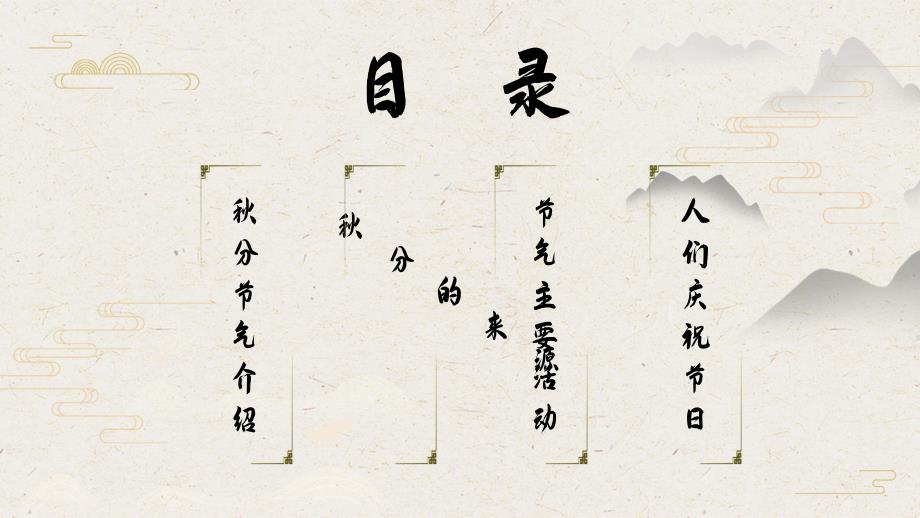 目 录
秋分节气介绍
秋分的来源
节气主要活动
人们庆祝节日